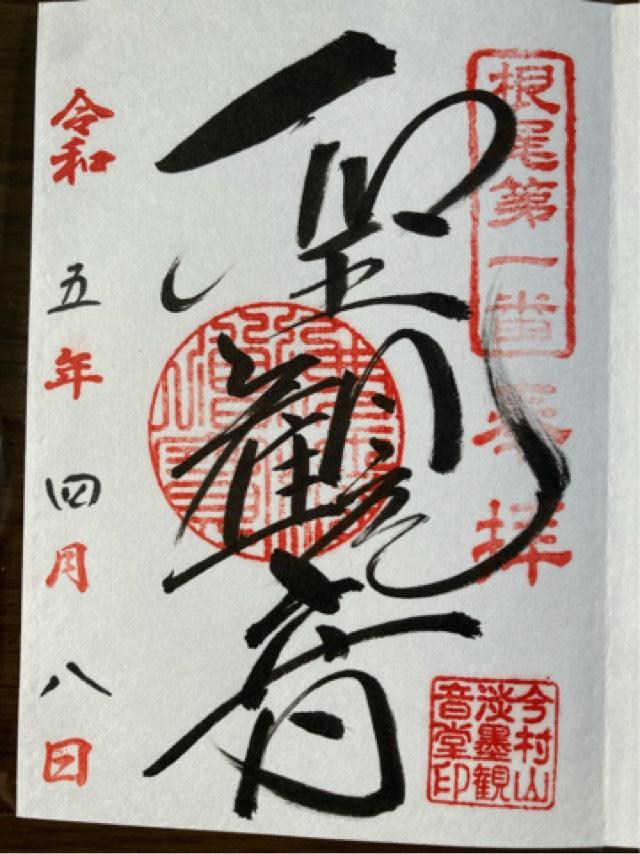 根尾第一番
奉拝
今村山
淡墨観
音堂印
聖観音
令和五年四月八日